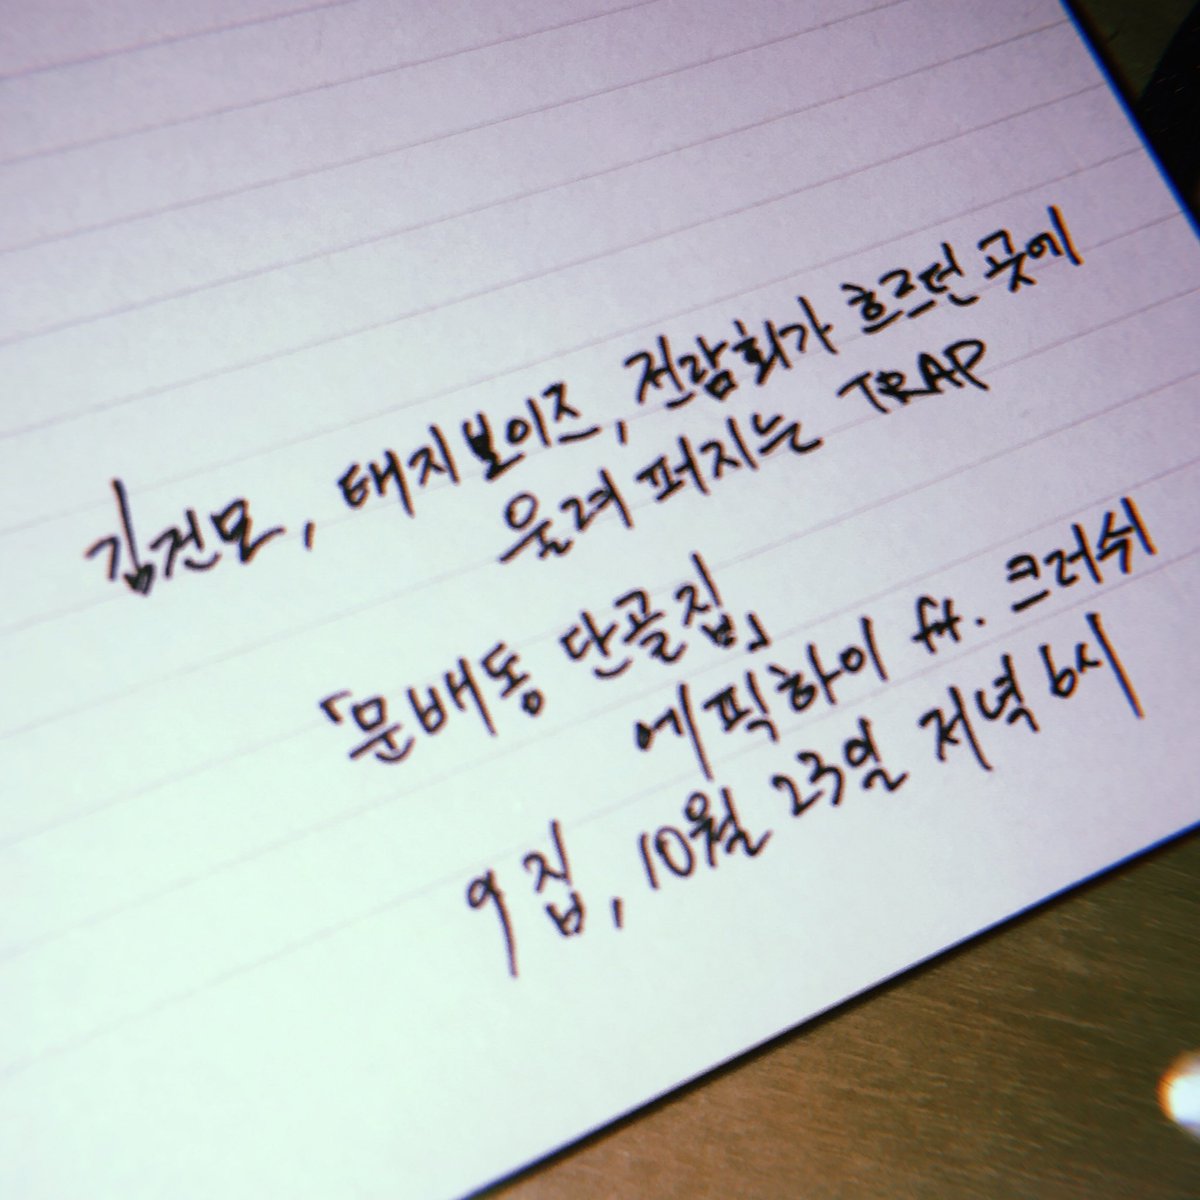 김건모, 태지보이즈, 전람회가 흐르던 곳에
울려 퍼지는 TRAP
「문배동 단골집」
에픽하이 ft. 크러쉬
9집, 10월 23일 저녁 6시